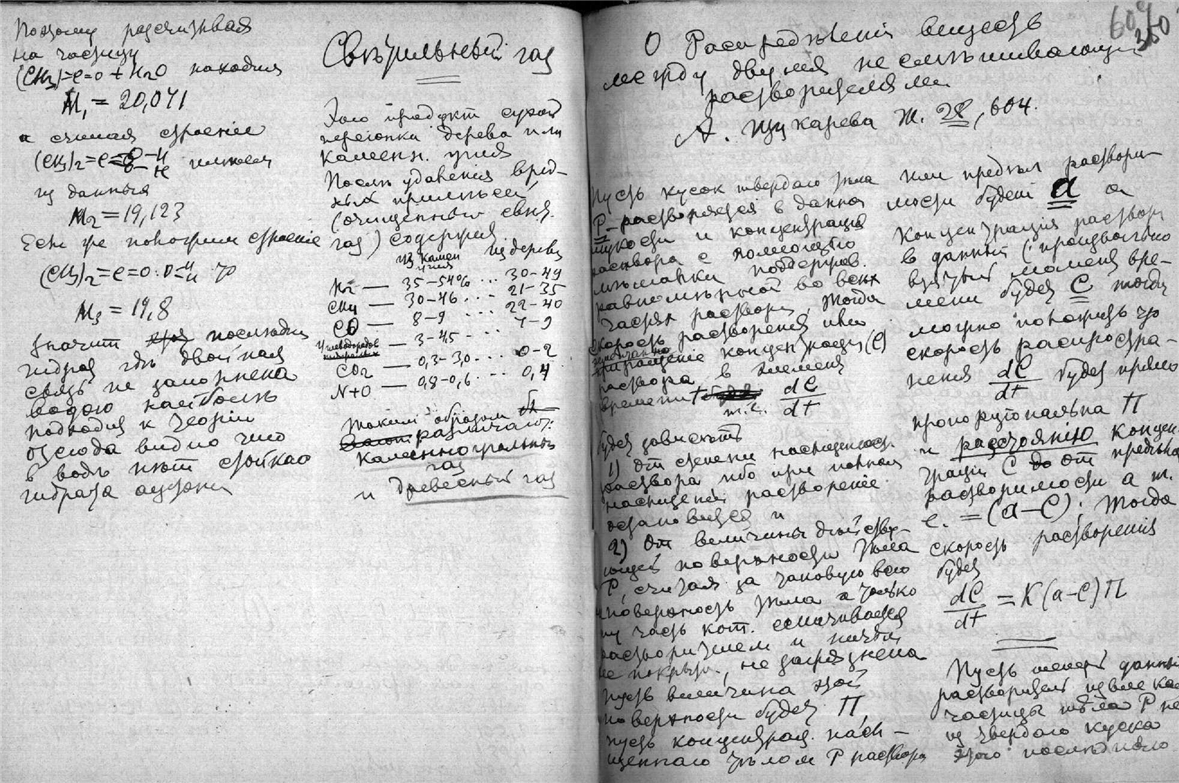 Поэтому рассчитывая
на частицу
(CH3)2=C=O + H2O находим
M1 = 20,041
а считая строение
(CH3)2=C= имеем
из данных
M2 = 19,123
Если же положим строение
(CH3)2=C=O:O
M3 = 19,8
Значит последний
гидрат где двойная
связь не заполнена
водою наиболее
подходит к теории
Отсюда видно что
в воде нет стойкаго
гидрата ацетона
Светильный газ
Это продукт сухой
перегонки дерева или
каменн. угля
После удаления вред-
ных примесей
(очищенный свет.
газ) содержит
из камен угля из дерева
H2 — 35-54% ... 30-49
CH4 — 30-46 ... 21-35
CO — 8-9 ... 22-40
Углеводородов — 3-45 ... 7-9
CO2 — 0,3-30 ... 0-2
N+O — 0,8-0,6 ... 0,4
Таким образом
различают:
каменноугольный
газ
и древесный газ
609
360
О Распределении веществ
между двумя несмешивающи
растворителями
А. Щукарева Ж. 28, 604.
Пусть кусок твердаго тела
P растворяется в данной
жидкости и концентрация
раствора с помощью
мешалки поддержив.
равномерной во всех
частях раствора. Тогда
скорость растворения или
приращение концентрации (C)
раствора в элемент
времени t
т.е. dC/dt
будет зависеть
1) От степени насыщения
раствора ибо при полном
насыщении растворение
остановится и
2) От величины действу-
ющей поверхности тела
P, считая за таковую не всю
поверхность тела а только
ту часть кот. смачивается
растворителем и ничем
не покрыта, не загрязнена
Пусть величина этой
поверхности будет П,
пусть концентрац. насы-
щеннаго телом P раствора
или предел раствори-
мости будет a а
концентрация раствора
в данный (произвольно
взятый момент вре-
мени будет C тогда
можно положить что
скорость распростра-
нения dC/dt будет прямо
пропорциональна П
и расстоянию концен
трации C до от предела
растворимости a т.
е. = (a-C). Тогда
скорость растворения
будет
dC/dt = K(a-C)П
Пусть теперь данный
растворитель извлекает
частицы тела P не
из твердаго куска
этого последняго